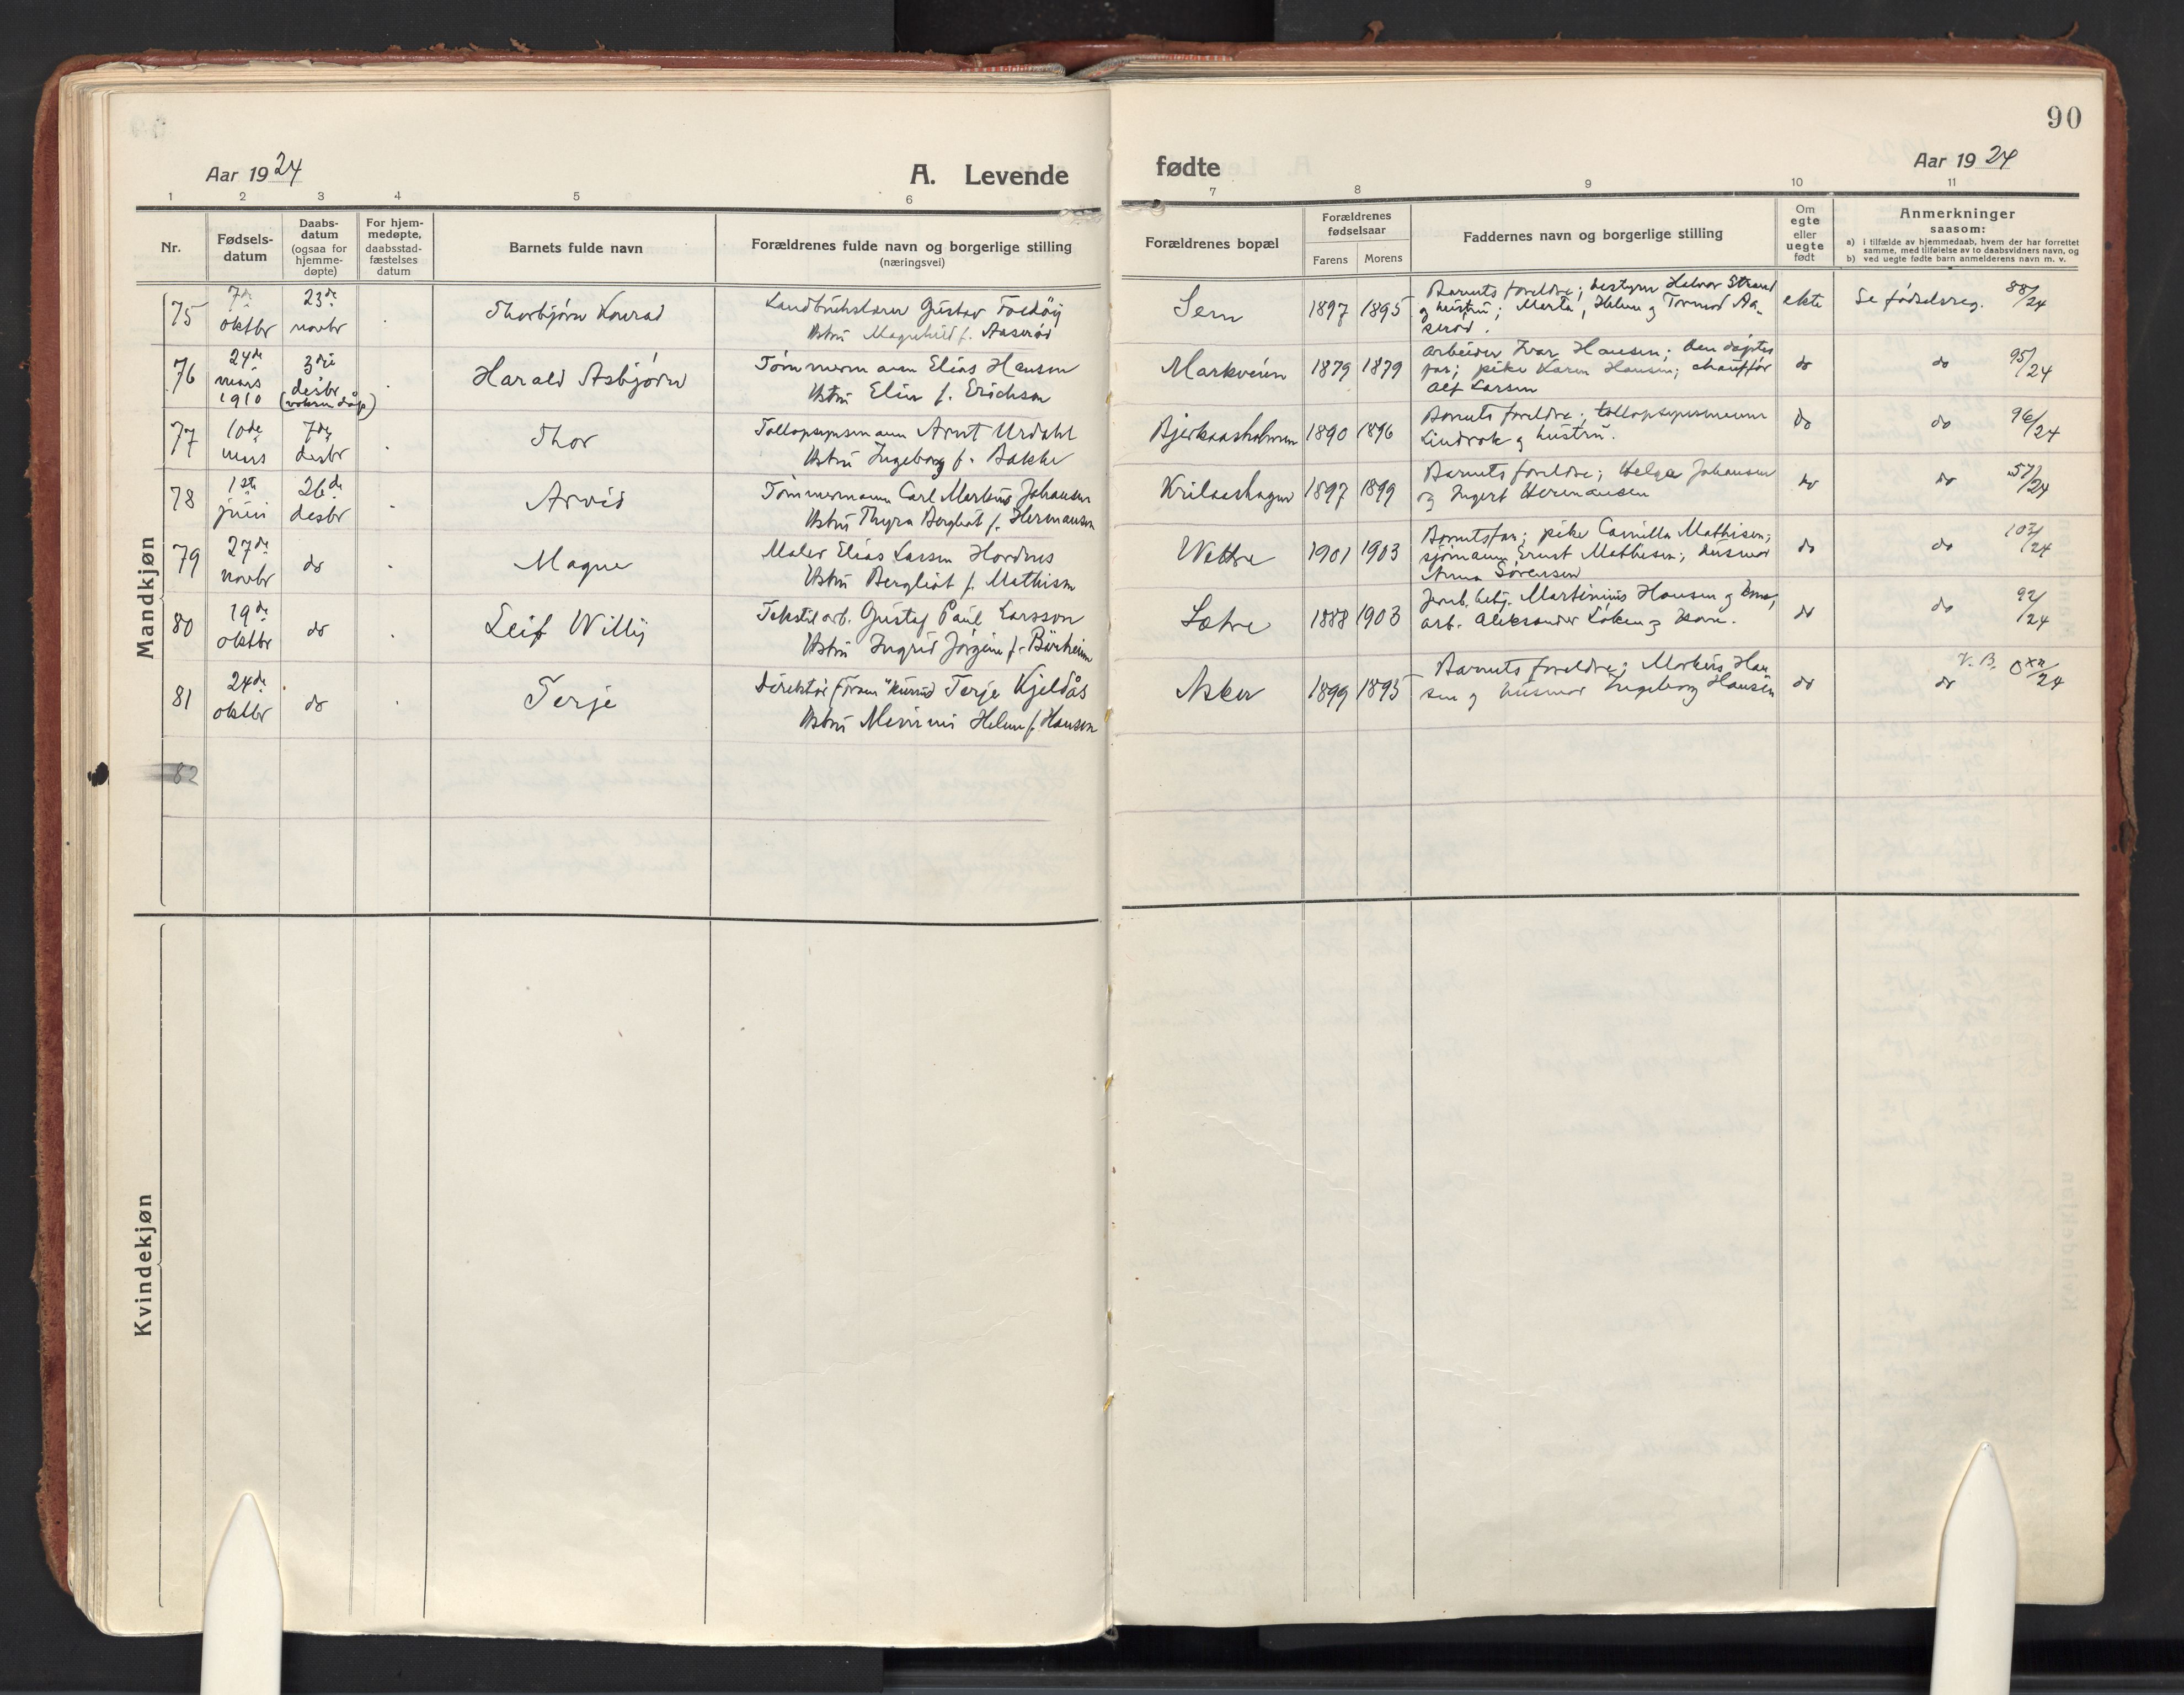 90
Aar 1924
A. Levende
fødte
Aar 1924
1 2 3 4 5 6 7 8 9 10 11
Nr.
Fødsels-
datum
Daabs-
datum
(ogsaa for
hjemme-
døpte)
For hjem-
medøpte,
daabsstad-
fæstelses
datum
Barnets fulde navn
Forældrenes fulde navn og borgerlige stilling
(næringsvei)
Forældrenes bopæl
Forældrenes
fødselsaar
Farens
Morens
Faddernes navn og borgerlige stilling
Om
egte
eller
uegte
født
Anmerkninger
saasom:
a) i tilfælde av hjemmedaab, hvem der har forrettet
samme, med tilføielse av to daabsvidners navn, og
b) ved uegte fødte barn anmelderens navn m. v.
Mandkjøn
75
7de
oktbr
23de
novbr
Thorbjørn Konrad
Gustav
Hstru Magnhild f. Aaserød
Sem
1897 1895
Barnets foreldre; bestyrer Halvor Strand
og hustru; Marta, Helene og Tormod Aa-
serød.
ekte
Se fødselsreg. 88/24
76
24de
mars
1910
3die
desbr
(voksen dåp)
Harald Asbjørn
Tømmermann Elias Hansen
Hstru Elin f. Erichsen
Markveien
1879 1879
Arbeider Ivar Hansen; den døptes
far; pike Karen Hansen; chauffør
Alf Larsen
do
do 95/24
77
10de
mars
7de
desbr
Thor
Tollopsynsmann Arnt Urdahl
Hstru Ingeborg f. Bakke
Bjerkaasholmen
1890 1896
Barnets foreldre; tollopsynsmann
Lindvok og hustru.
do
do 96/24
78
1ste
juni
26de
desbr
Arvid
Tømmermann Carl Markus Johansen
Hstru Thyra Bergliot f. Hermansen
1897 1899
Barnets foreldre; Helga Johansen
og Ingert Hermansen
do
do 57/24
79
27de
novbr
do
Magne
Maler Elias Larsen Hordnes
Hstru Bergliot f. Mathisen
Vettre
1901 1903
Barnets far; pike Camilla Mathisen;
sjømann Ernst Mathisen; husmor
Anna Sørensen
do
do 103/24
80
19de
oktbr
do
Leif Willy
Tekstilarb. Gustaf Paul Larsson
Hstru Ingrid Jørgine f. Bårheim
Sætre
1888 1903
Jernb.betj. Martinius Hansen og kone;
arb. Aleksander Løken og kone.
do
do 92/24
81
24de
oktbr
do
Terje
Direktør Terje Kjeldås
Hstru Mimmi Helene f. Hansen
Asker
1899 1895
Barnets foreldre; Markus Han
sen og husmor Ingeborg Hansen
do
do V. B.
82
Kvindekjøn